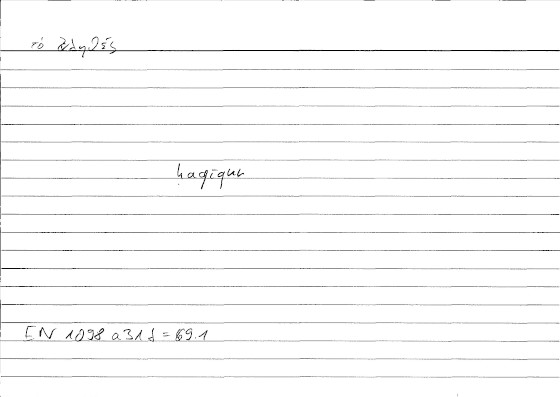 τὸ ἀληθές
ḥaqīqun
EN 1098 a31 f = 69.1